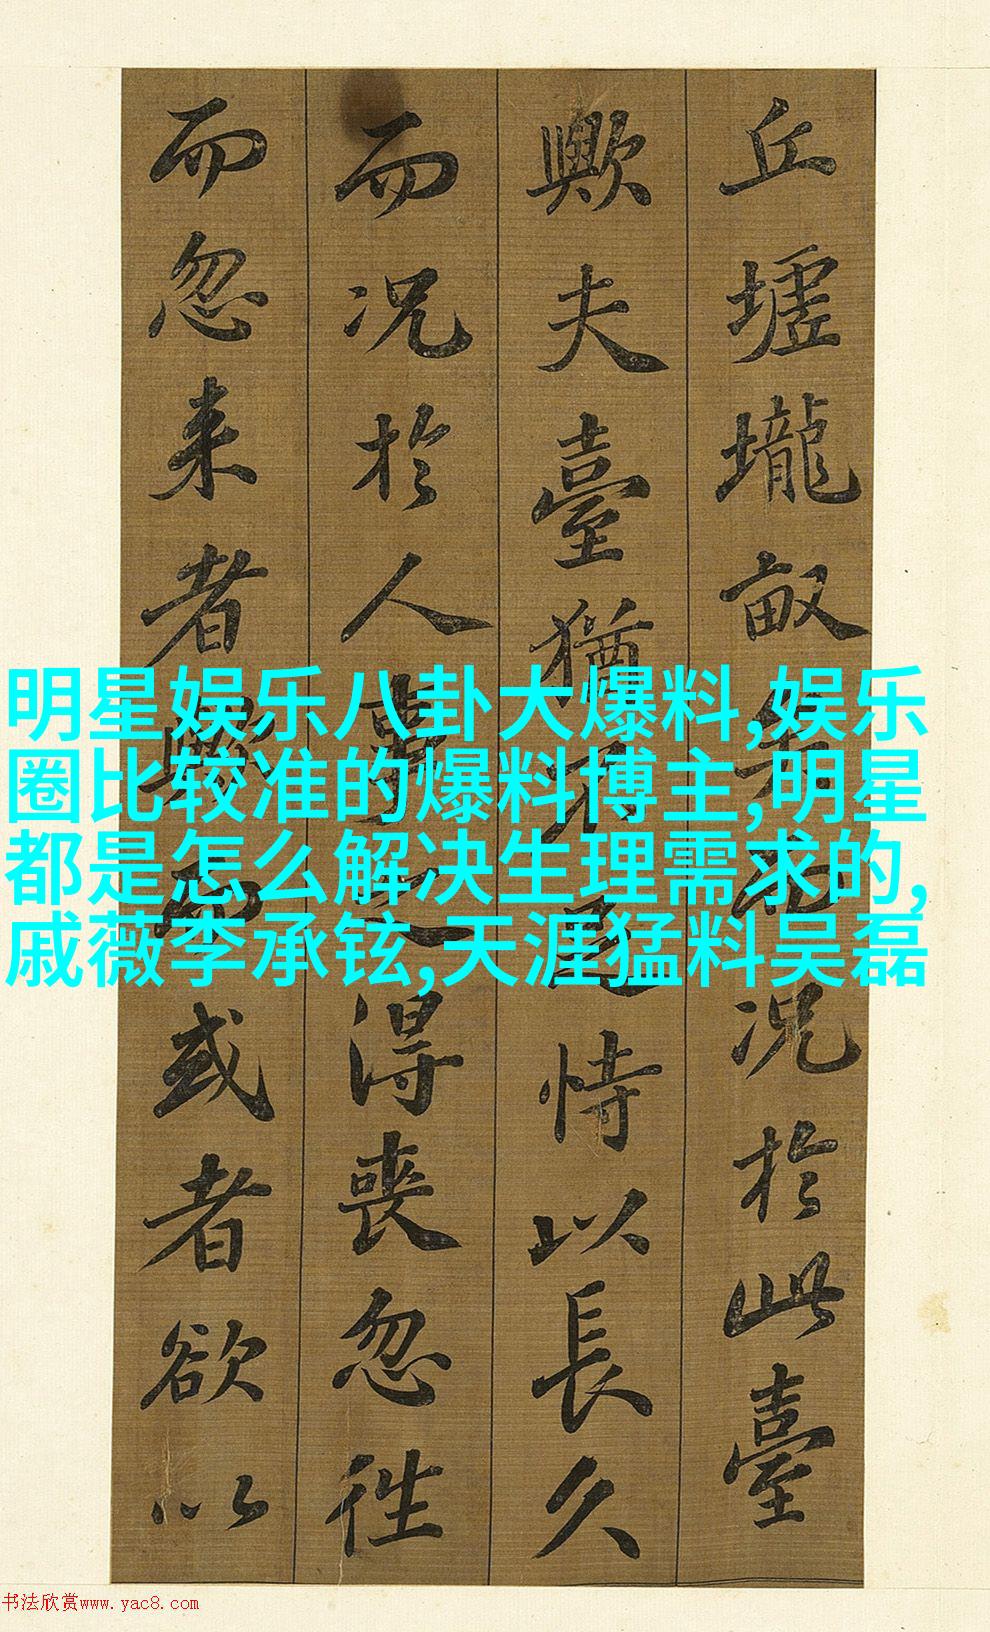 丘墟壠畝矣而况於此臺
歟夫臺猶不足恃以長久
而况於人事之得喪忽徃
而忽来者歟而或者欲以
明星娱乐八卦大爆料,娱乐
圈比较准的爆料博主,明星
都是怎么解决生理需求的,
戚薇李承铉,天涯猛料吴磊
书法欣赏www.yac8.com